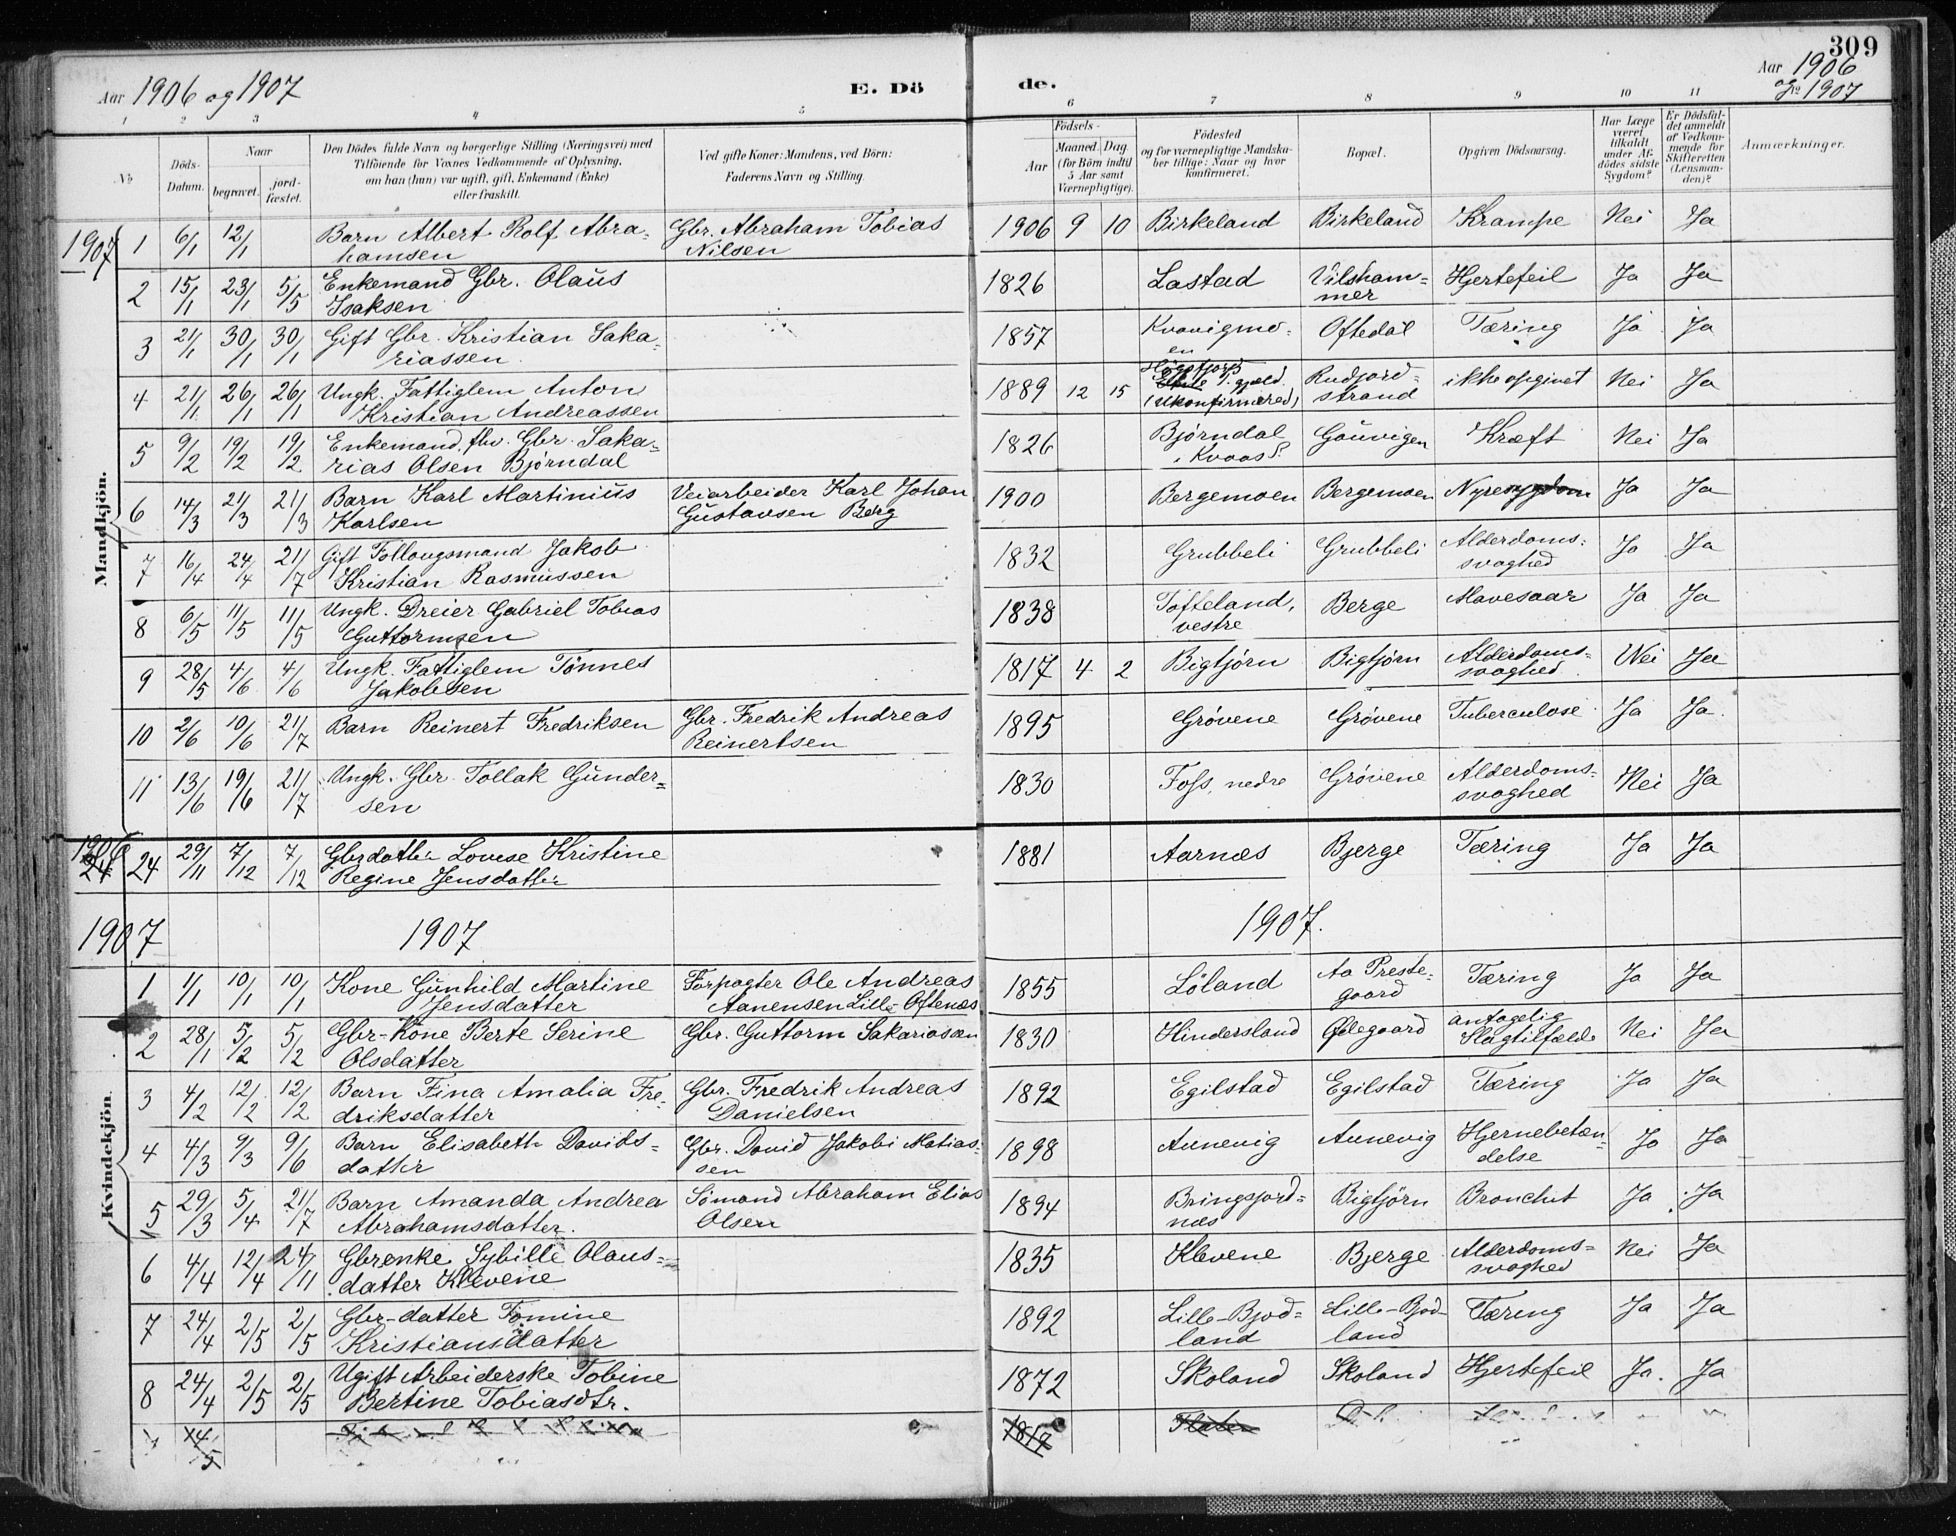 309
Aar 1906 og 1907 E. Dö de. Aar 1906
og 1907
1 2 3 4 5 6 7 8 9 10 11
№
Döds-
Datum.
Naar
begravet. jord-
fæstet.
Den Dödes fulde Navn og borgerlige Stilling (Næringsvei) med
Tilföiende for Voxnes Vedkommende af Oplysning,
om han (hun) var ugift, gift, Enkemand (Enke)
eller fraskilt.
Ved gifte Koner: Mandens, ved Börn:
Faderens Navn og Stilling.
Födsels-
Aar Maaned. Dag.
(for Börn indtil
5 Aar samt
Værnepligtige).
Födested
og for værnepligtige Mandska-
ber tillige: Naar og hvor
konfirmeret.
Bopæl.
Opgiven Dödsaarsag.
Har Læge
været
tilkaldt
under Af-
dödes sidste
Sygdom?
Er Dödsfal-
det anmeldt
af Vedkom-
mende for
Skifteretten
(Lensman-
den)?
Anmærkninger.
Mandkjön.
1907 1 6/1 12/1 Barn Albert Rolf Abra- Gbr. Abraham Tobias 1906 9 10 Birkeland Birkeland Krampe Nei Ja
hamsen Nilsen
2 15/1 23/1 5/5 Enkemand Gbr. Olaus 1826 Lastad Vilsham- Hjertefeil Ja Ja
Isaksen mer
3 21/1 30/1 30/1 Gift Gbr. Kristian Saka- 1857 Kvavigmo- Oftedal Tæring Ja Ja
riassen en
4 21/1 26/1 26/1 Ungk. Fattiglem Anton 1889 12 15 Høgsfjord Rudjord- ikke opgivet Nei Ja
Kristian Andreassen P. gjeld. (Ukonfirmered) strand
5 9/2 19/2 19/2 Enkemand, fhv. Gbr. Saka- 1826 Bjørndal Gauvigen Kræft Nei Ja
rias Olsen Bjørndal i Kvaas S.
6 14/3 21/3 21/3 Barn Karl Martinius Veiarbeider Karl Johan 1900 Bergemoen Bergemoen Nyresygdom Ja Ja
Karlsen Gustavsen Berg
7 16/4 24/4 21/7 Gift Follaugsmand Jakob 1832 Grubbeli Grubbeli Alderdoms- Ja Ja
Kristian Rasmussen svaghed
8 6/5 11/5 11/5 Ungk. Dreier Gabriel Tobias 1838 Tofteland, Berge Mavesaar Ja Ja
Guttormsen vestre
9 28/5 4/6 4/6 Ungk. Fattiglem Tønnes 1817 4 2 Bigtjørn Bigtjørn Alderdoms- Nei Ja
Jakobsen svaghed
10 2/6 10/6 21/7 Barn Reinert Fredriksen Gbr. Fredrik Andreas 1895 Grøvene Grøvene Tuberculose Ja Ja.
Reinertsen
11 13/6 19/6 21/7 Ungk. Gbr. Tollak Gunder- 1830 Foss, nedre Grøvene Alderdoms- Nei Ja
sen svaghed
1906
24 24 29/11 7/12 7/12 Gbrdatter Lovise Kristine 1881 Aarnæs Bjerge Tæring Ja Ja
Regine Jensdatter
1907 1907 1907.
Kvindekjön.
1 1/1 10/1 10/1 Kone Gunhild Martine Forpagter Ole Andreas 1855 Löland Aa Preste- Tæring Ja Ja
Jensdatter Aanensen Lille Oftenæs gaard
2 28/1 5/2 5/2 Gbr-Kone Berte Serine Gbr. Guttorm Sakariasen 1830 Hindersland Ødegaard antagelig Nei Ja
Olsdatter Slagtilfælde
3 4/2 12/2 12/2 Barn Fina Amalia Fre- Gbr. Fredrik Andreas 1892 Egilstad Egilstad Tæring Ja Ja
driksdatter Danielsen
4 4/3 9/3 9/6 Barn Elisabeth Davids- Gbr. David Jakobi Matias- 1898 Aunevig Aunevig Hjernebetæn- Ja Ja
datter sen delse
5 29/3 5/4 21/7 Barn Amanda Andrea Sömand Abraham Elias 1894 Bringsjord- Bigtjörn Bronchit Ja Ja
Abrahamsdatter. Olsen næs
6 4/4 12/4 24/11 Gbrenke Sybille Olaus- 1835 Klevene Bjerge Alderdoms- Nei Ja
datter Klevene svaghed
7 24/4 2/5 2/5 Gbr-datter Tomine 1892 Lille-Bjod- Lille-Bjod- Tæring Ja Ja
Kristiansdatter land land
8 24/4 2/5 2/5 Ugift Arbeiderske Tobine 1872 Skoland Skoland Hjertefeil Ja. Ja
Bertine Tobiasdtr.
1817